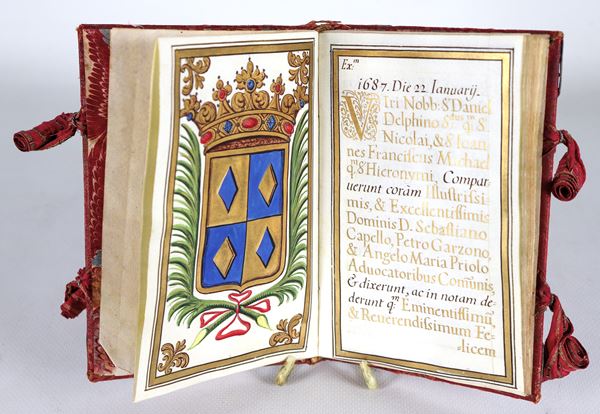 Ex.m
1687. Die 22 Ianuarij.
VIri Nobb: Sr Daniel
Delphino Sttus qm S.
Nicolai, & S. Ioan
nes Franciscus Michael
qm S. Hieronymi, Compar
uerunt coràm Illustrissi
mis, & Excellentissimis
Dominis D. Sebastiano
Capello, Petro Garzono,
& Angelo Maria Priolo
Aduocatoribus Comunis,
& dixerunt, ac in notam de
derunt qm Eminentissimũ,
& Reuerendissimum Fe-
licem